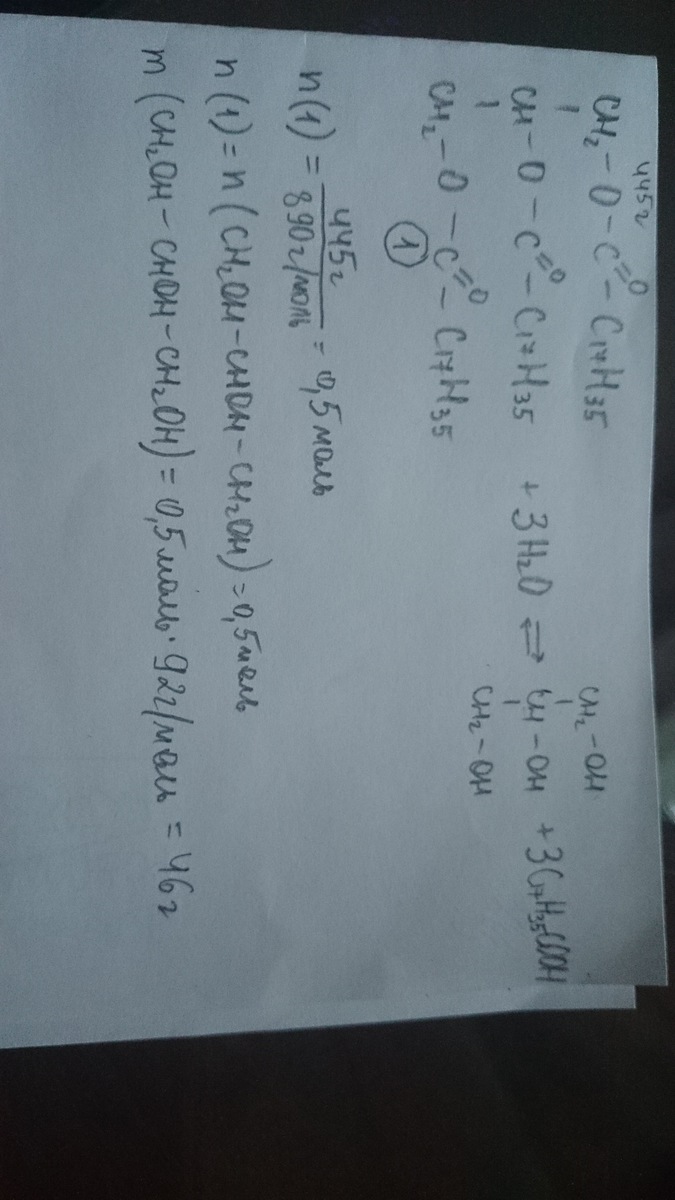 445г
CH₂ – O – C=O – C₁₇H₃₅
CH – O – C=O – C₁₇H₃₅ + 3H₂O ⇌ CH – OH + 3C₁₇H₃₅COOH
CH₂ – O – C=O – C₁₇H₃₅
CH₂ – OH
CH₂ – OH
①
n(1) = 445г / 890г/моль = 0,5 моль
n(1) = n(CH₂OH – CHOH – CH₂OH) = 0,5 моль
m(CH₂OH – CHOH – CH₂OH) = 0,5 моль · 92г/моль = 46г